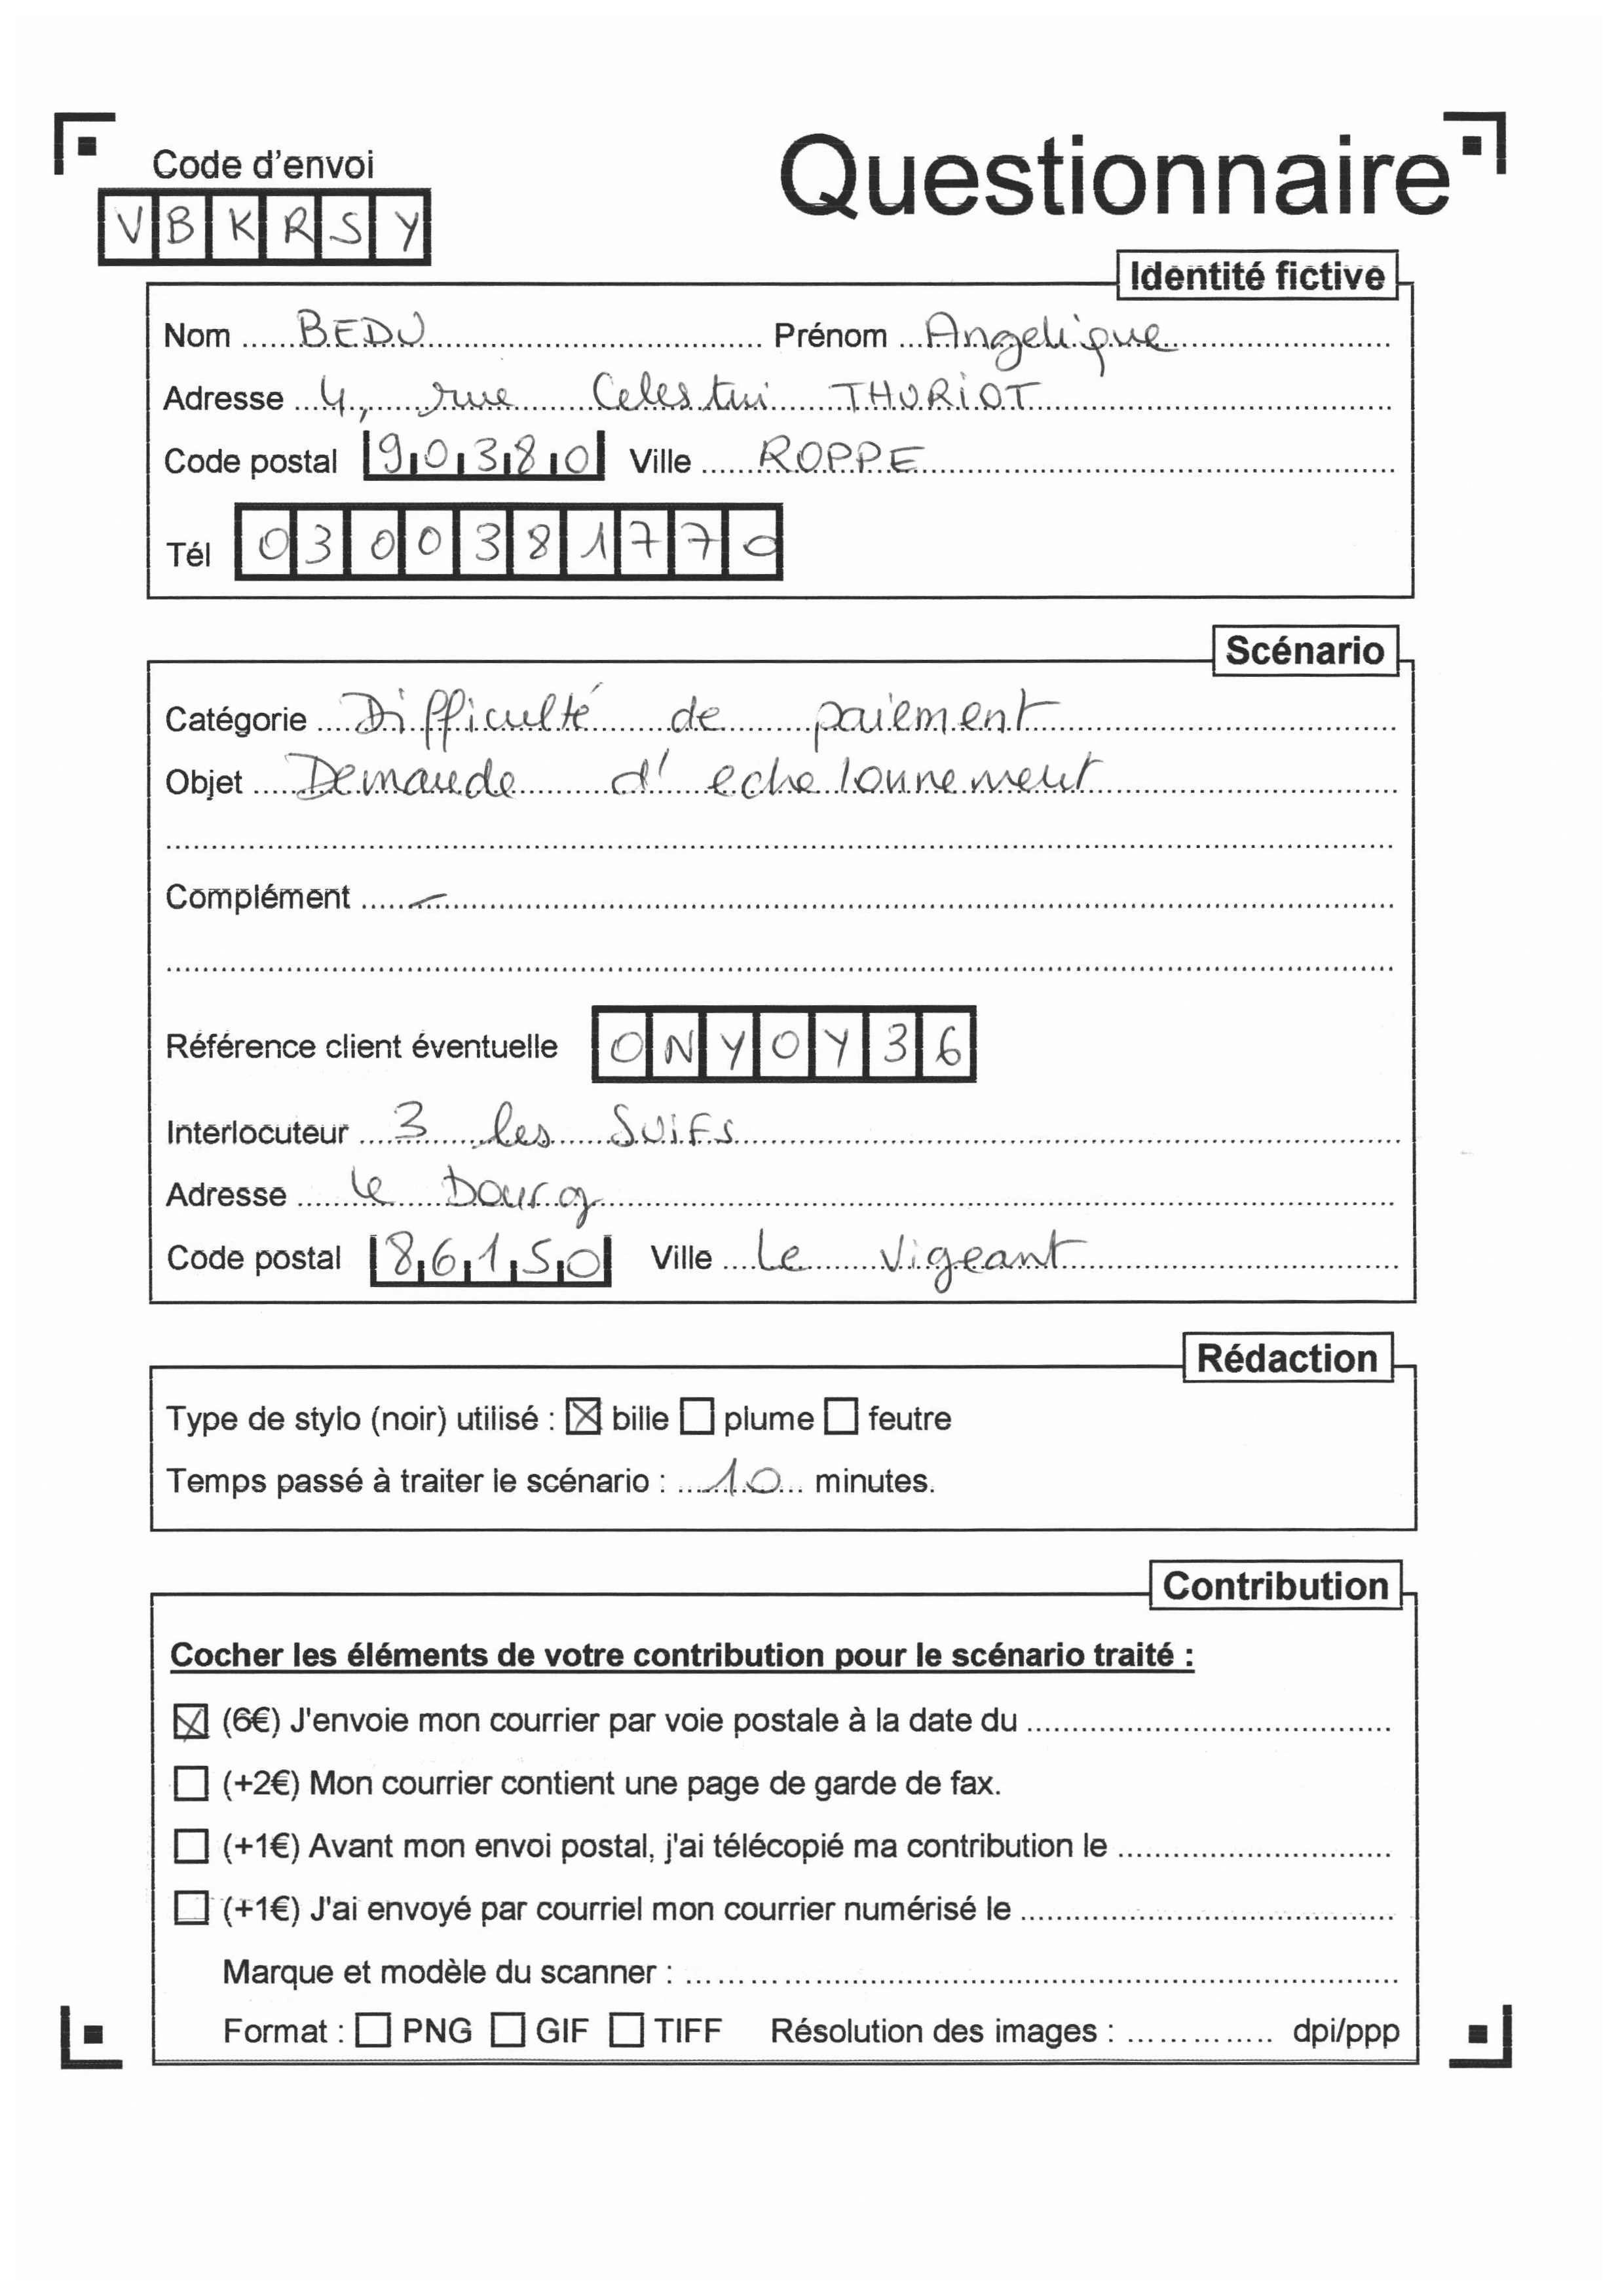 Questionnaire
Code d'envoi
VBKRSY
Identité fictive
Nom ...... BEDU ...... Prénom ... Angelique ......
Adresse ... 4, rue Celestin THURIOT ......
Code postal 90380 Ville ...... ROPPE ......
Tél 0300381770
Scénario
Catégorie .... Difficulté de paiement ......
Objet .... Demande d'echelonnement ......
Complément ..... - ......
Référence client éventuelle ONYOY36
Interlocuteur .... 3 les SUiFS ......
Adresse .... Le bourg ......
Code postal 86150 Ville .... Le Vigeant ......
Rédaction
Type de stylo (noir) utilisé : ☒ bille ☐ plume ☐ feutre
Temps passé à traiter le scénario : ... 10 ... minutes.
Contribution
Cocher les éléments de votre contribution pour le scénario traité :
☒ (6€) J'envoie mon courrier par voie postale à la date du ......
☐ (+2€) Mon courrier contient une page de garde de fax.
☐ (+1€) Avant mon envoi postal, j'ai télécopié ma contribution le ......
☐ (+1€) J'ai envoyé par courriel mon courrier numérisé le ......
Marque et modèle du scanner : ......
Format : ☐ PNG ☐ GIF ☐ TIFF Résolution des images : ...... dpi/ppp